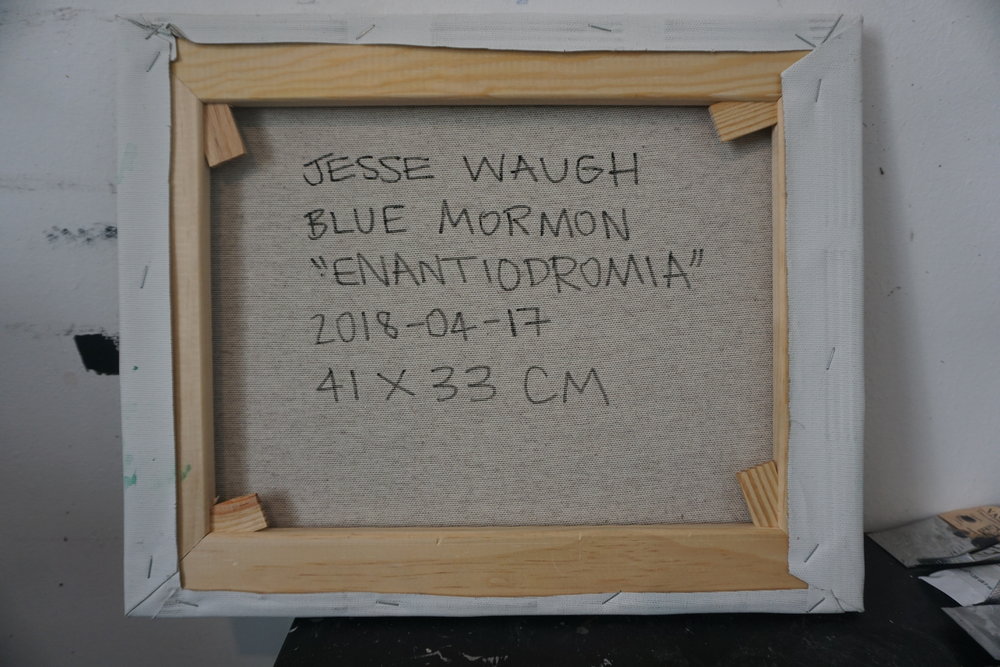 JESSE WAUGH
BLUE MORMON
"ENANTIODROMIA"
2018-04-17
41 X 33 CM